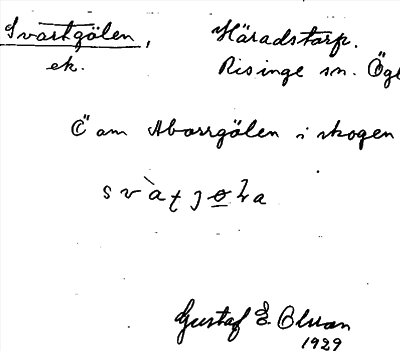 Svartgölen, Häradstorp.
ek. Risinge sn. Ög
Ö om Aborrgölen i skogen
Gustaf E. Olsson
1929